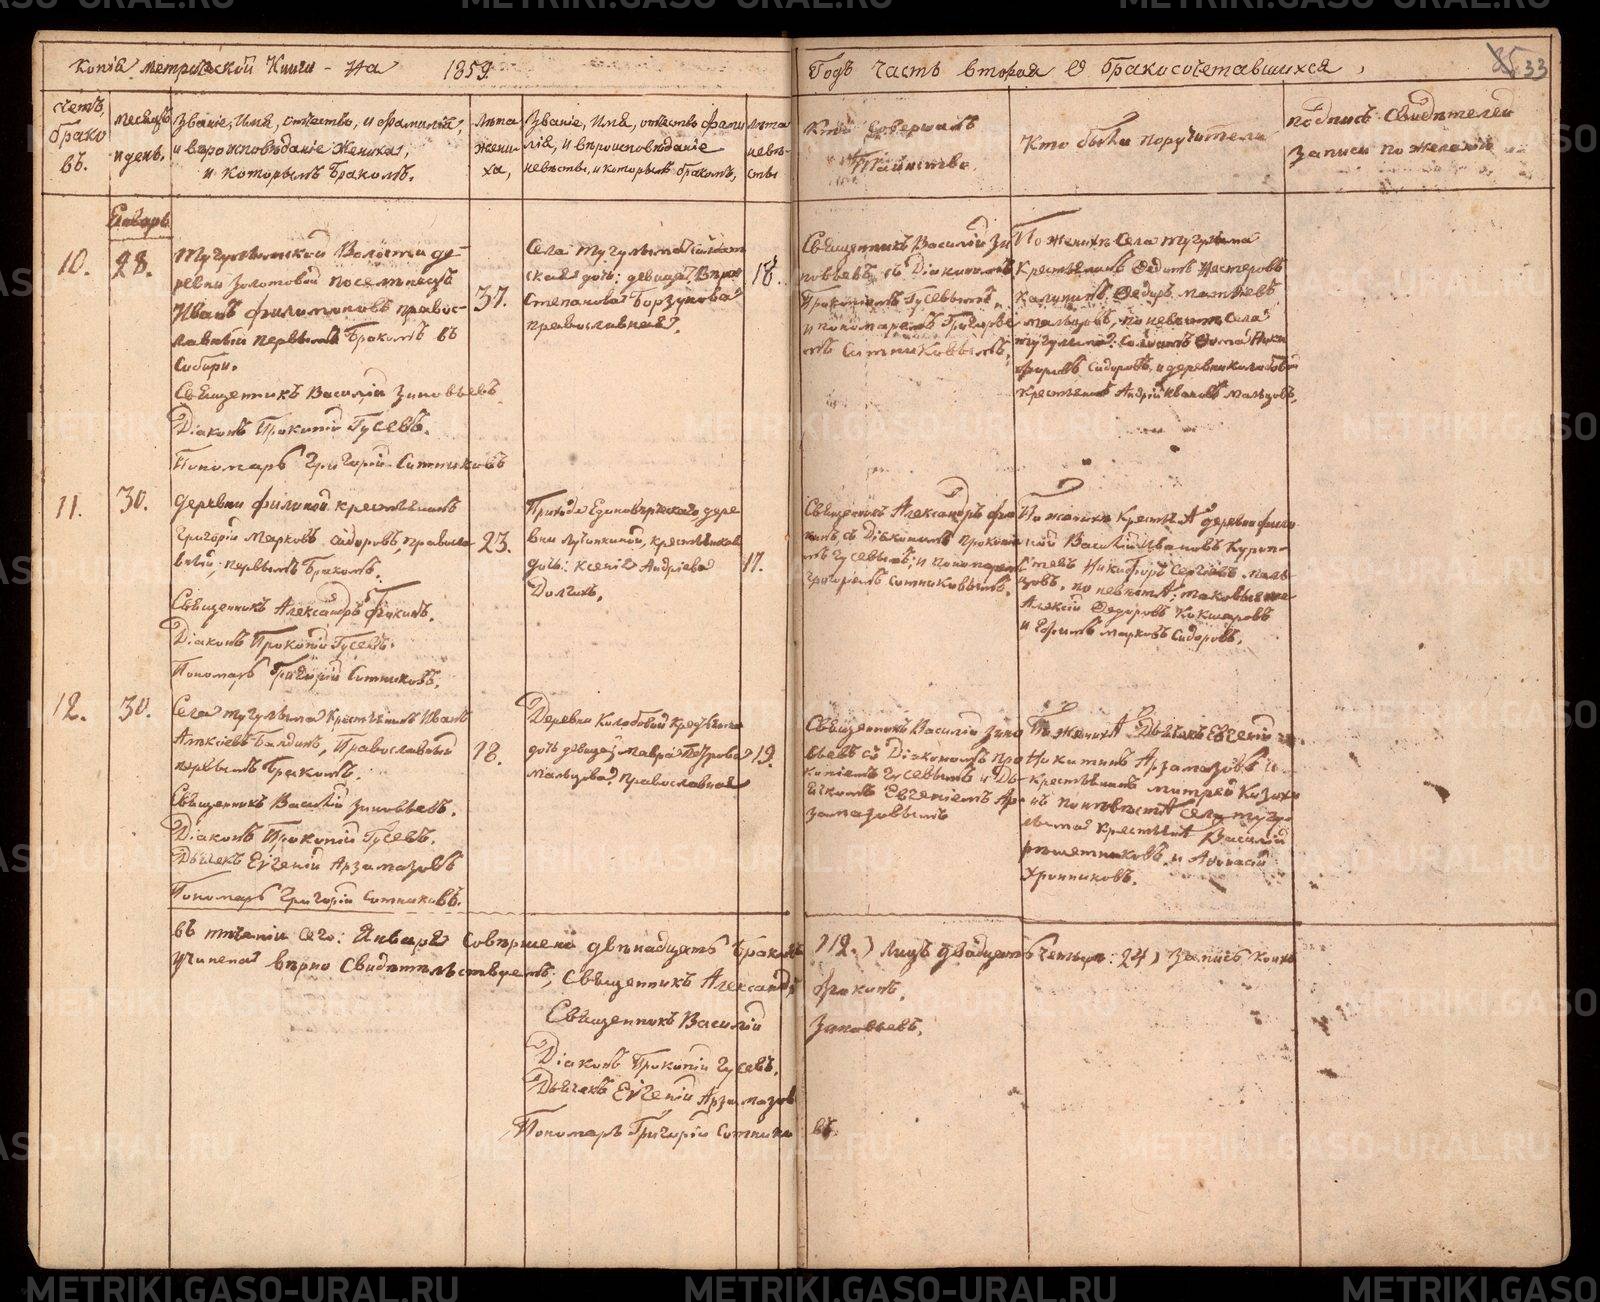 Копія метрической Книги - На 1859.
Годъ часть вторая О бракосочетавшихся,
33
счетъ
брако
въ.
месяцъ
и день.
Званіе, Имя, отчество, и фамилія,
и вѣроисповѣданіе Жениха,
и которымъ бракомъ.
лѣта
жени-
ха,
Званіе, Имя, отчество фами
лія, и вѣроисповѣданіе
невѣсты, и которымъ бракомъ,
лѣта
невѣ-
сты
Кто Совершалъ
Таинство.
Кто были поручители
подпись Свидѣтелей
записи по желанію
Январь
10.
28.
Тугулымской Волости де-
ревни Золотовой поселенецъ
Иванъ филимоновъ правос-
лавный первымъ бракомъ въ
Сибири.
Священникъ Василій Зиновьевъ.
Діаконъ Прокопій Гусевъ.
Пономарь Григорій Ситниковъ
37.
Села Тугулыма Солдат
ская дочь: девица
Степанова Борзунова
православная.
18.
Священникъ Василій Зи
новьевъ съ Діакономъ
Прокопіемъ Гусевымъ,
и пономаремъ Григорье
мъ Ситниковымъ.
По женихѣ Села тугулыма
Крестьянинъ Федотъ Нестеровъ
Калугинъ, Федоръ Матвѣевъ
мальцовъ, по невѣсте Села
тугулыма: Солдатъ Фома Ники
форовъ Сидоровъ, и деревни колобовой
крестьянинъ Андрій Ивановъ мальцовъ.
11.
30.
деревни филиной крестьянинъ
Григорій Марковъ Сидоровъ, правосла
вный, первымъ бракомъ.
Священникъ Александръ Фокинъ.
Діаконъ Прокопій Гусевъ.
Пономарь Григорій Ситниковъ.
23.
Прихода Единовѣрческаго дере
вни Лучинкиной, крестьянская
дочь: Ксенія Андріева
Долгихъ.
17.
Священникъ Александръ фо
кинъ, съ Діакономъ Прокопіе
мъ Гусевымъ, и пономаремъ
Григоріемъ Ситниковымъ.
По женихѣ Крестьян деревни фили
ной Василій Ивановъ
Никифоръ Сергѣевъ маль
цовъ. по невѣстѣ: таковые же
Алексій Федоровъ Кокшаровъ
и Ефимъ марковъ Сидоровъ.
12.
30.
Села тугулыма Крестьянинъ Иванъ
Алексіевъ Балдинъ, Православный
первымъ бракомъ.
Священникъ Василій Зиновьевъ.
Діаконъ Прокопій Гусевъ.
Дьячекъ Евгеній Арзамазовъ
Пономарь Григорій Ситниковъ.
18.
Деревни Колобовой Крестьянина
дочь девица: Мавра Петрова
Мальцова, Православная
19.
Священникъ Василій Зино
вьевъ съ Діакономъ Про
копіемъ Гусевымъ и Дья
чкомъ Евгеніемъ Ар-
замазовымъ
По женихѣ Дьячекъ Евгеній
Никитинъ Арзамазовъ и
крестьянинъ митрей Казако
въ по невѣстѣ Села тугу
лыма крестьянѣ Василій
решетниковъ, и Афонасій
Хронниковъ.
Въ теченіи сего: Января Совершено двѣнадцать браковъ
(12.) Лицъ двадцать четыре: 24) Запись коихъ
учинена вѣрно Свидѣтельствуемъ, Священникъ Александръ
Фокинъ.
Священникъ Василій
Зиновьевъ.
Діаконъ Прокопій Гусевъ.
Дьячекъ Евгеній Арзамазов
Пономарь Григорій Ситнико
въ.
METRIKI.GASO-URAL.RU